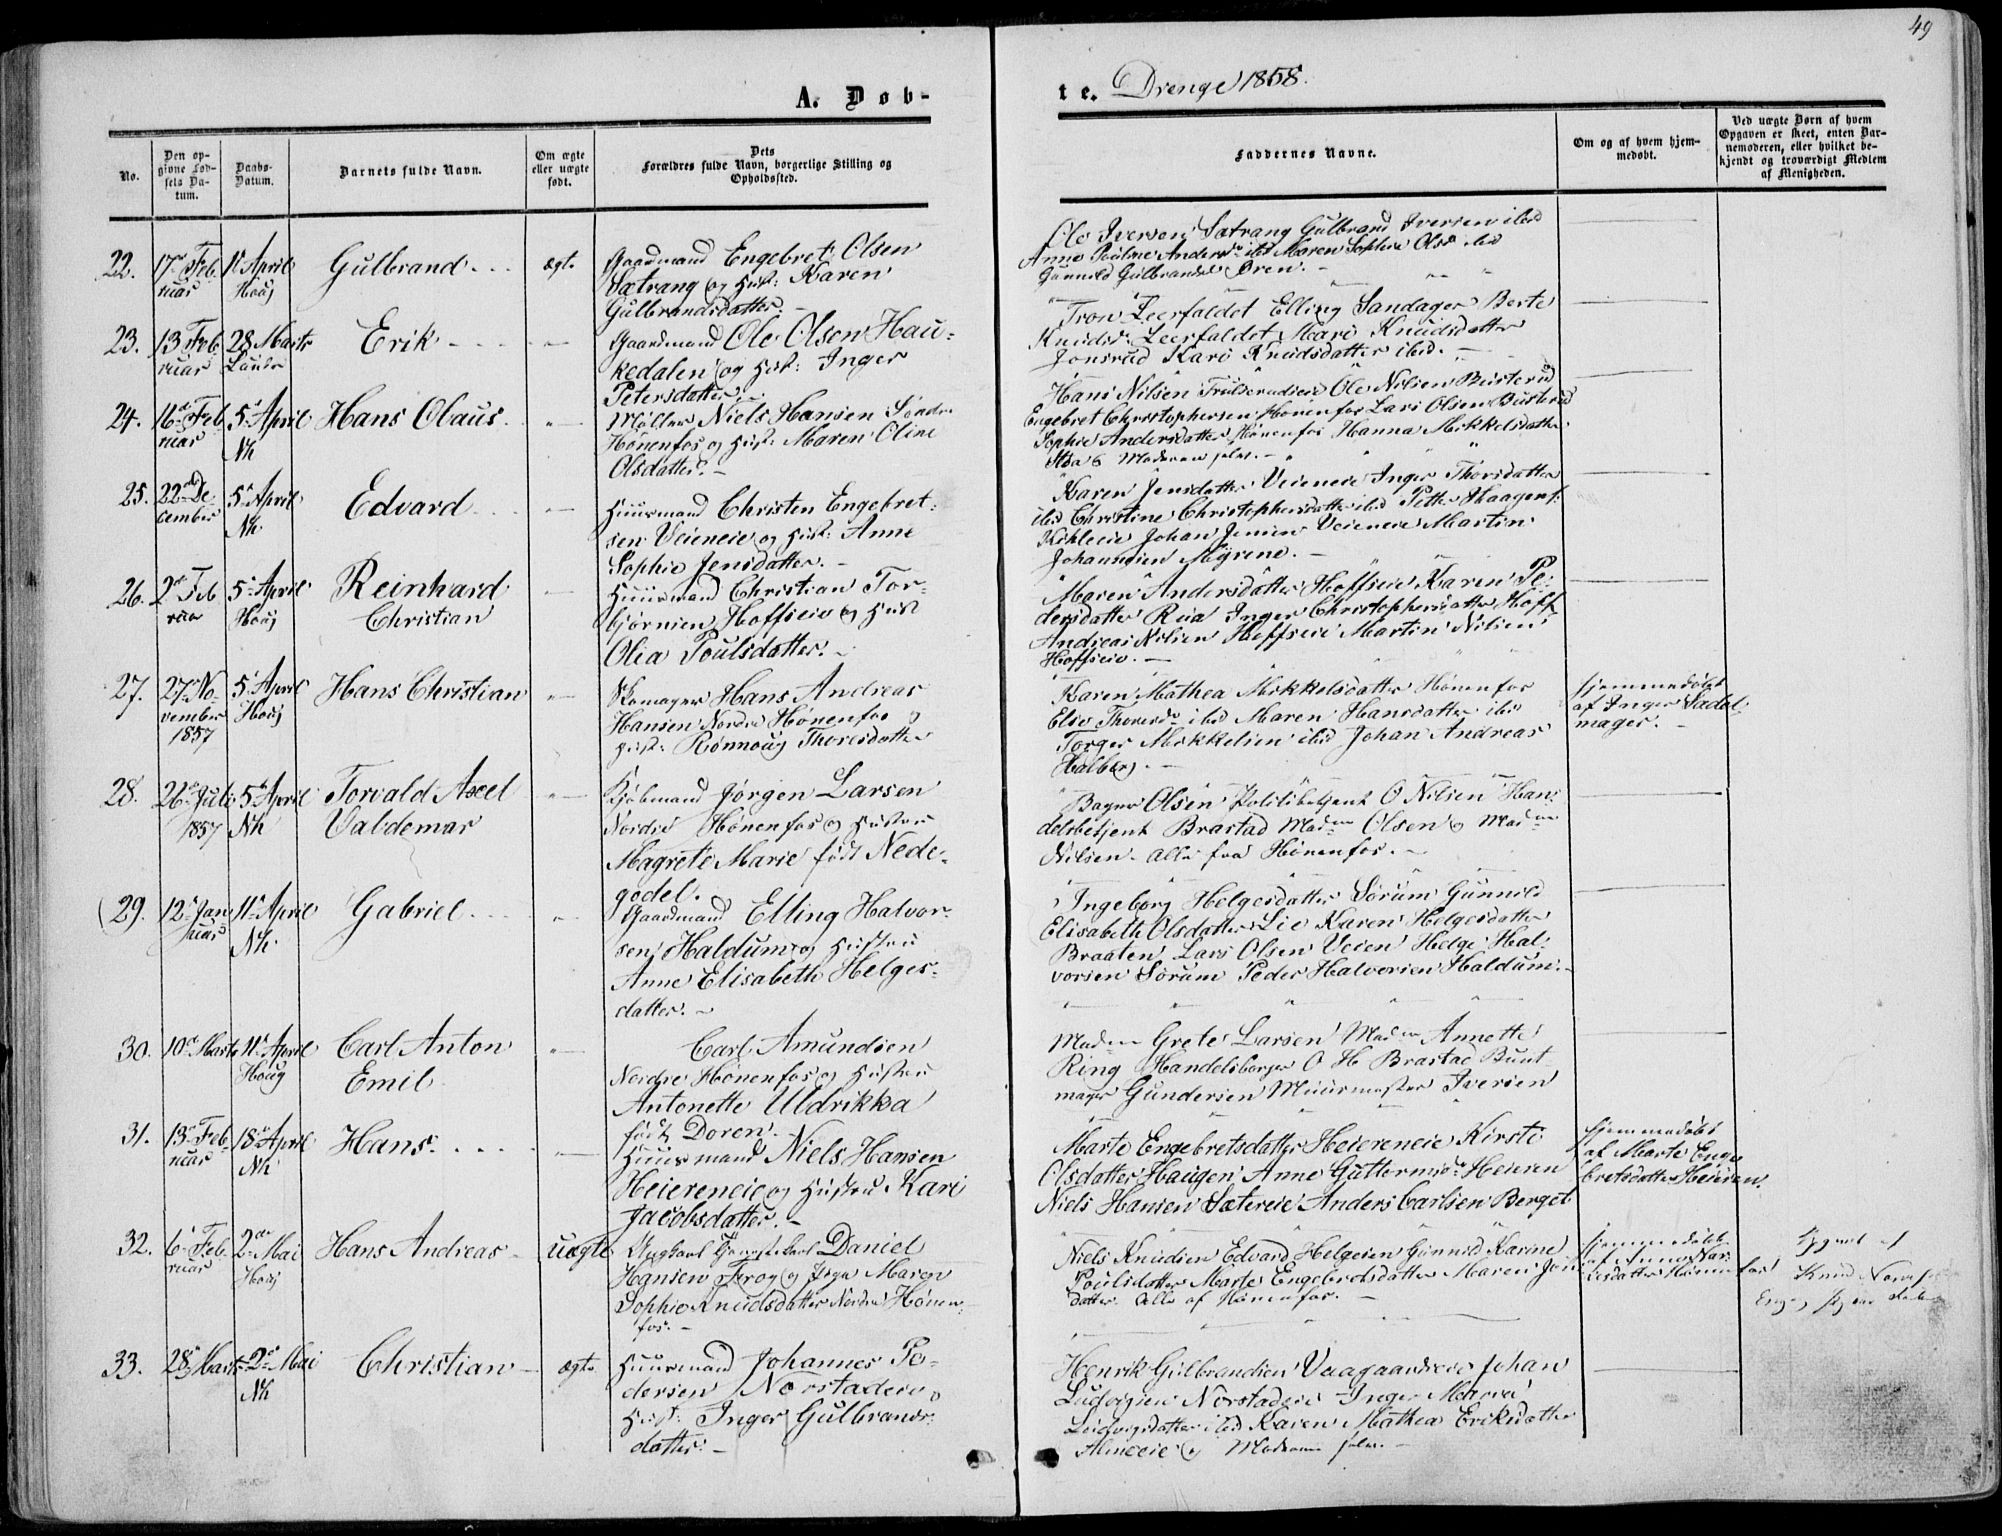 49
A. Døb-
te. Drenge 1858.
No.
Den op-
givne Fød-
sels Da-
tum.
Daabs-
Datum.
Barnets fulde Navn.
Om ægte
eller uægte
født.
Dets
Forældres fulde Navn, borgerlige Stilling og
Opholdssted.
Faddernes Navne.
Om og af hvem hjem-
medøbt.
Ved uægte Børn af hvem
Opgaven er skeet, enten Bar-
nemoderen, eller hvilket be-
kjendt og troværdigt Medlem
af Menigheden.
22. 17 Feb 11 April Gulbrand ægte Gaardmand Engebret Olsen
ruar Houg Sætrang og Hust: Karen
Gulbrandsdatter.
Ole Iversen Sætrang Gulbrand Iversen ibid
Anne Pauline Andersd. ibid Maren Sophie Olsd. ibid
Gunnild Gulbrandsd. Øren.
23. 13 Feb 28 Marts Erik Gaardmand Ole Olsen Hau-
ruar Lunder kedalen og Hust: Inger
Petersdatter.
Tron Leerfaldet Elling Sandager Berte
Knudsd. Leerfaldet Mari Knudsdatter
Jonsrud Kari Knudsdatter ibid.
24. 16 Feb 5 April Hans Olaus Møller Niels Hansen Søndre
ruar Nh Hønenfos og Hust: Maren Oline
Olsdatter.
Hans Nilsen Trulserudeie Ole Nilsen Busterud
Engebret Christophersen Hønenfos Lars Olsen Busterud
Sophie Andersdatter Hønenfos Hanna Mikkelsdatter
Moderen selv.
25. 22 De 5 April Edvard Huusmand Christen Engebret-
cember Nh sen Veieneie og Hust: Anne
Sophie Jensdatter.
Karen Jensdatter Veieneie Inger Thorsdatter
ibid Christine Christophersdatter ibid Petter Haagens.
Johan Jensen Veieneie Martin
Johannesen Myrene.
26. 2 Feb 5 April Reinhard Huusmand Christian Tor-
ruar Houg Christian bjørnsen Hoffseie og Hust
Olia Poulsdatter.
Maren Andersdatter Hoffseie Karen Pe-
dersdatter Rua Inger Christophersdatter Hoff
Andreas Nilsen Hoffseie Martin Nilsen
Hoffseie.
27. 27 No 5 April Hans Christian Skomager Hans Andreas
vember Houg Hansen Nordre Hønenfos og
1857 Hust: Rønnoug Thoresdatter
Karen Mathea Mikkelsdatter Hønenfos
Elise Thoresd. ibid Maren Hansdatter ibid
Torger Mikkelsen ibid Johan Andreas
Halberg.
Hjemmedøbt
af Inger Sadel-
mager.
28. 26 Juli 5 April Torvald Axel Kjøbmand Jørgen Larsen
1857 Nh Valdemar Nordre Hønenfos og Hustru
Magrete Marie født Nede-
godel.
Bager Olsen Politibetjent O Nilsen Han-
delsbetjent Brastad Madm Olsen og Madm
Nilsen. Alle fra Hønenfos.
29. 12 Jan 11 April Gabriel Gaardmand Elling Halvor-
nuar Nh sen Haldum og Hustru
Anne Elisabeth Helges-
datter.
Ingeborg Helgesdatter Sørum Gunnild
Elisabeth Olsdatter Lie Karen Helgesdatter
Braaten Lars Olsen Veien Helge Hal-
vorsen Sørum Peder Halvorsen Haldum.
30. 10 Marts 11 April Carl Anton Carl Amundsen
Houg Emil Nordre Hønenfos og Hustru
Antonette Uldrikka
født Doren.
Madm Grete Larsen Madm Annette
Ring Handelsborger O H Brastad Bunt-
mager Gundersen Muurmester Iversen
31. 13 Feb 18 April Hans Huusmand Niels Hansen
ruar Nh Heiereneie og Hustru Kari
Jacobsdatter.
Marte Engebretsdatter Heiereneie Kirsti
Olsdatter Haugen Anne Guttormsd. Heieren
Niels Hansen Sætereie Anders Carlsen Berget
Hjemmedøbt
af Marte Enge
bretsdatter Heieren.
32. 6 Feb 2 Mai Hans Andreas uægte Ungkarl Tjenestekarl Daniel
ruar Houg Hansen Frog og Pige Maren
Sophie Knudsdatter Nordre Hønen-
fos.
Niels Knudsen Edvard Helgesen Gunnild Karine
Poulsdatter Marte Engebretsdatter Maren Jons
datter. Alle af Hønenfos.
Hjemmedøbt
af Anne Lar-
sdatter Hønenfos
Opgivet af
Knud
33. 28 Marts 2 Mai Christian ægte Huusmand Johannes Pe-
Nh dersen Norstadeie og
Hust: Inger Gulbrands-
datter.
Henrik Gulbrandsen Vaagaardseie Johan
Ludvigsen Norstadeie Inger Maria
Ludvigsdatter ibid Karen Mathea Eriksdatter
Almeeie og Moderen selv.